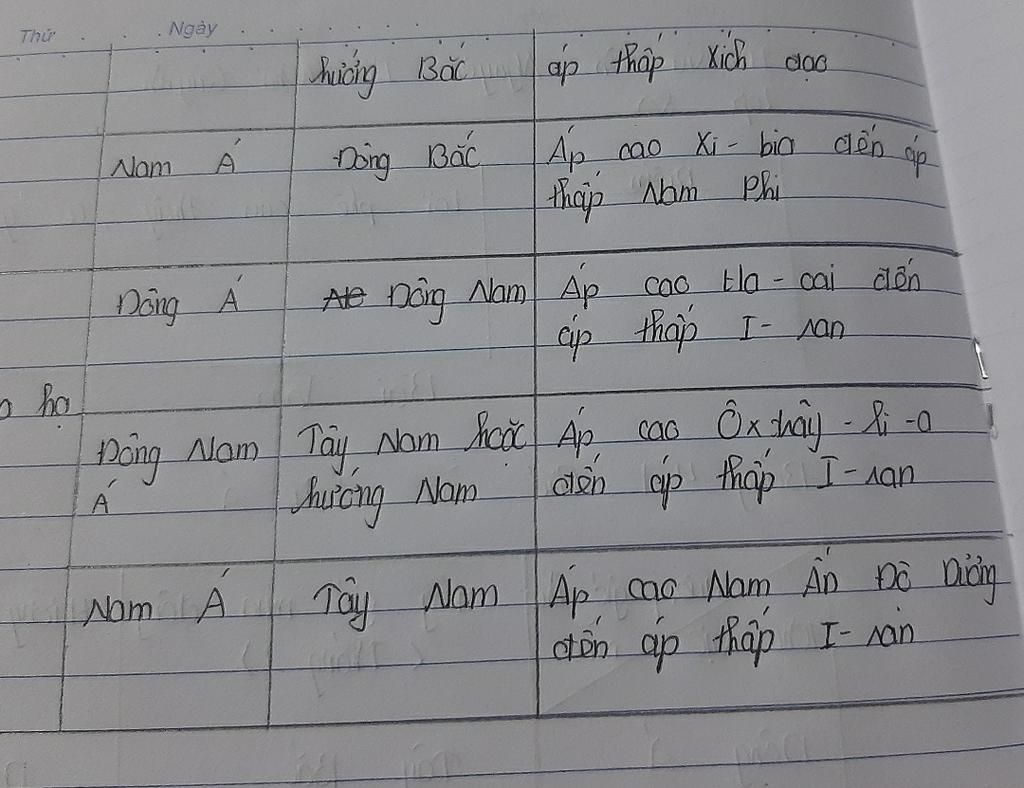 Thứ Ngày
hướng Bắc áp thấp Xích đạo
Nam Á Đông Bắc Áp cao Xi - bia đến áp
thấp Nam Phi
Đông Á Đông Nam Áp cao Ha - oai đến
áp thấp I - ran
hạ
Đông Nam Tây Nam hoặc Áp cao Ôx-trây - li - a
Á hướng Nam đến áp thấp I - ran
Nam Á Tây Nam Áp cao Nam Ấn Độ Dương
đến áp thấp I - ran